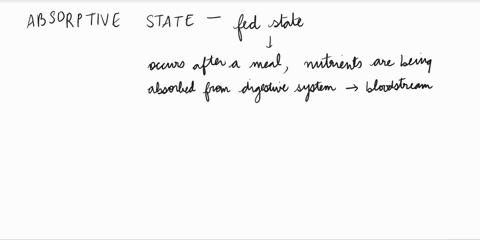 ABSORPTIVE STATE - fed state
↓
occurs after a meal, nutrients are being
absorbed from digestive system → bloodstream